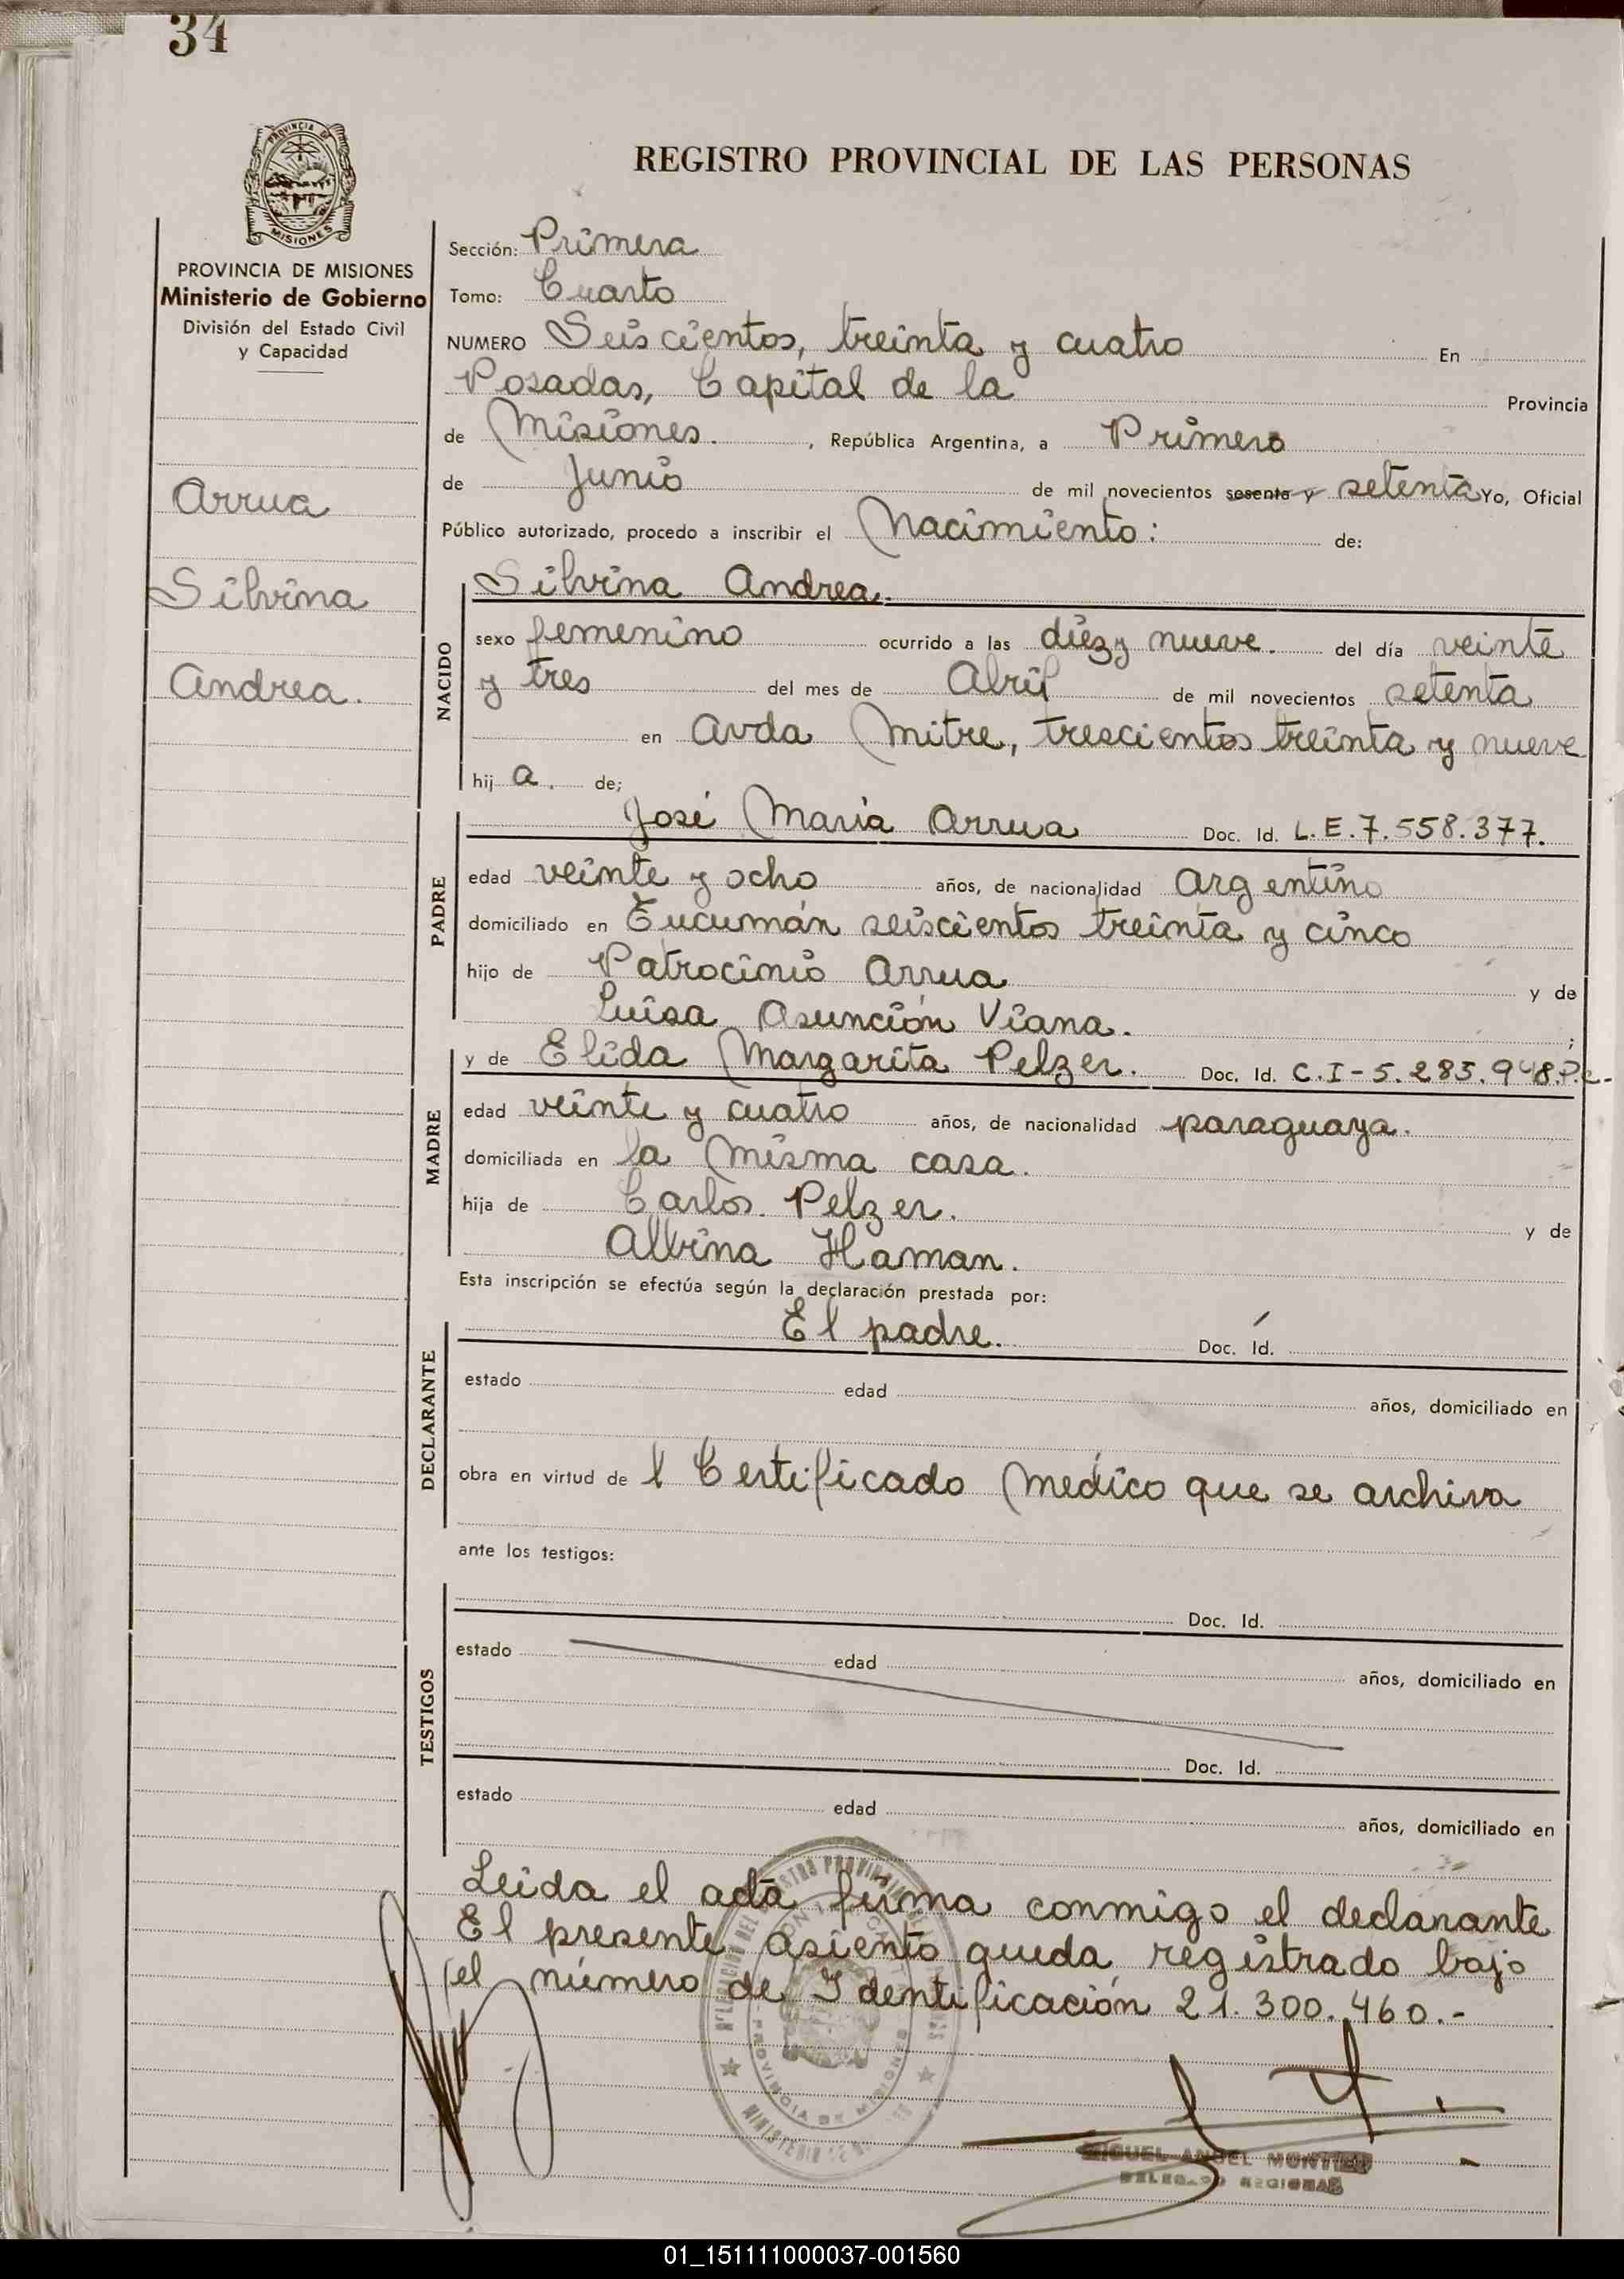 34
PROVINCIA DE
MISIONES
PROVINCIA DE MISIONES
Ministerio de Gobierno
División del Estado Civil
y Capacidad
Arrua
Silvina
Andrea.
REGISTRO PROVINCIAL DE LAS PERSONAS
Sección: Primera
Tomo: Cuarto
NUMERO Seiscientos, treinta y cuatro En
Posadas, Capital de la Provincia
de Misiones. , República Argentina, a Primero
de Junio de mil novecientos sesenta y setenta Yo, Oficial
Público autorizado, procedo a inscribir el Nacimiento: de:
NACIDO
Silvina Andrea.
sexo femenino ocurrido a las diez y nueve. del día veinte
y tres del mes de Abril de mil novecientos setenta
en Avda Mitre, trescientos treinta y nueve
hij a. de;
PADRE
José María Arrua Doc. Id. L.E.7.558.377.
edad veinte y ocho años, de nacionalidad Argentino
domiciliado en Tucumán seiscientos treinta y cinco
hijo de Patrocinio Arrua y de
Luisa Asunción Viana. ;
MADRE
y de Elida Margarita Pelzer. Doc. Id. C.I-5.285.948.P.C.-
edad veinte y cuatro años, de nacionalidad paraguaya.
domiciliada en la misma casa.
hija de Carlos. Pelzer. y de
Albina Haman.
Esta inscripción se efectúa según la declaración prestada por:
DECLARANTE
El padre. Doc. Id.
estado edad años, domiciliado en
obra en virtud de l Certificado medico que se archiva
ante los testigos:
TESTIGOS
Doc. Id.
estado edad años, domiciliado en
Doc. Id.
estado edad años, domiciliado en
Leida el acta firma conmigo el declarante
El presente asiento queda registrado bajo
el número de Identificación 21.300.460.-
PROVINCIA DE MISIONES
MIGUEL ANGEL
DELEGADO REGIONAL
01_151111000037-001560